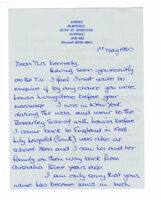 BURY ST. EDMUNDS,
SUFFOLK.
1st May 1980
Dear Mrs Kennedy,
Having seen you recently
on the T.V. I feel I must write to
enquire if by any chance you were
Louisa Livingstone before your
marriage. I was in New York
during the war and went to the
Beverley School with Louisa before
I came back to England in 1943
Lily Leopold (Smith) was also at
the school. I saw her and her
family on their way back from
Australia three years ago.
I am only sorry that your
name has become news in such